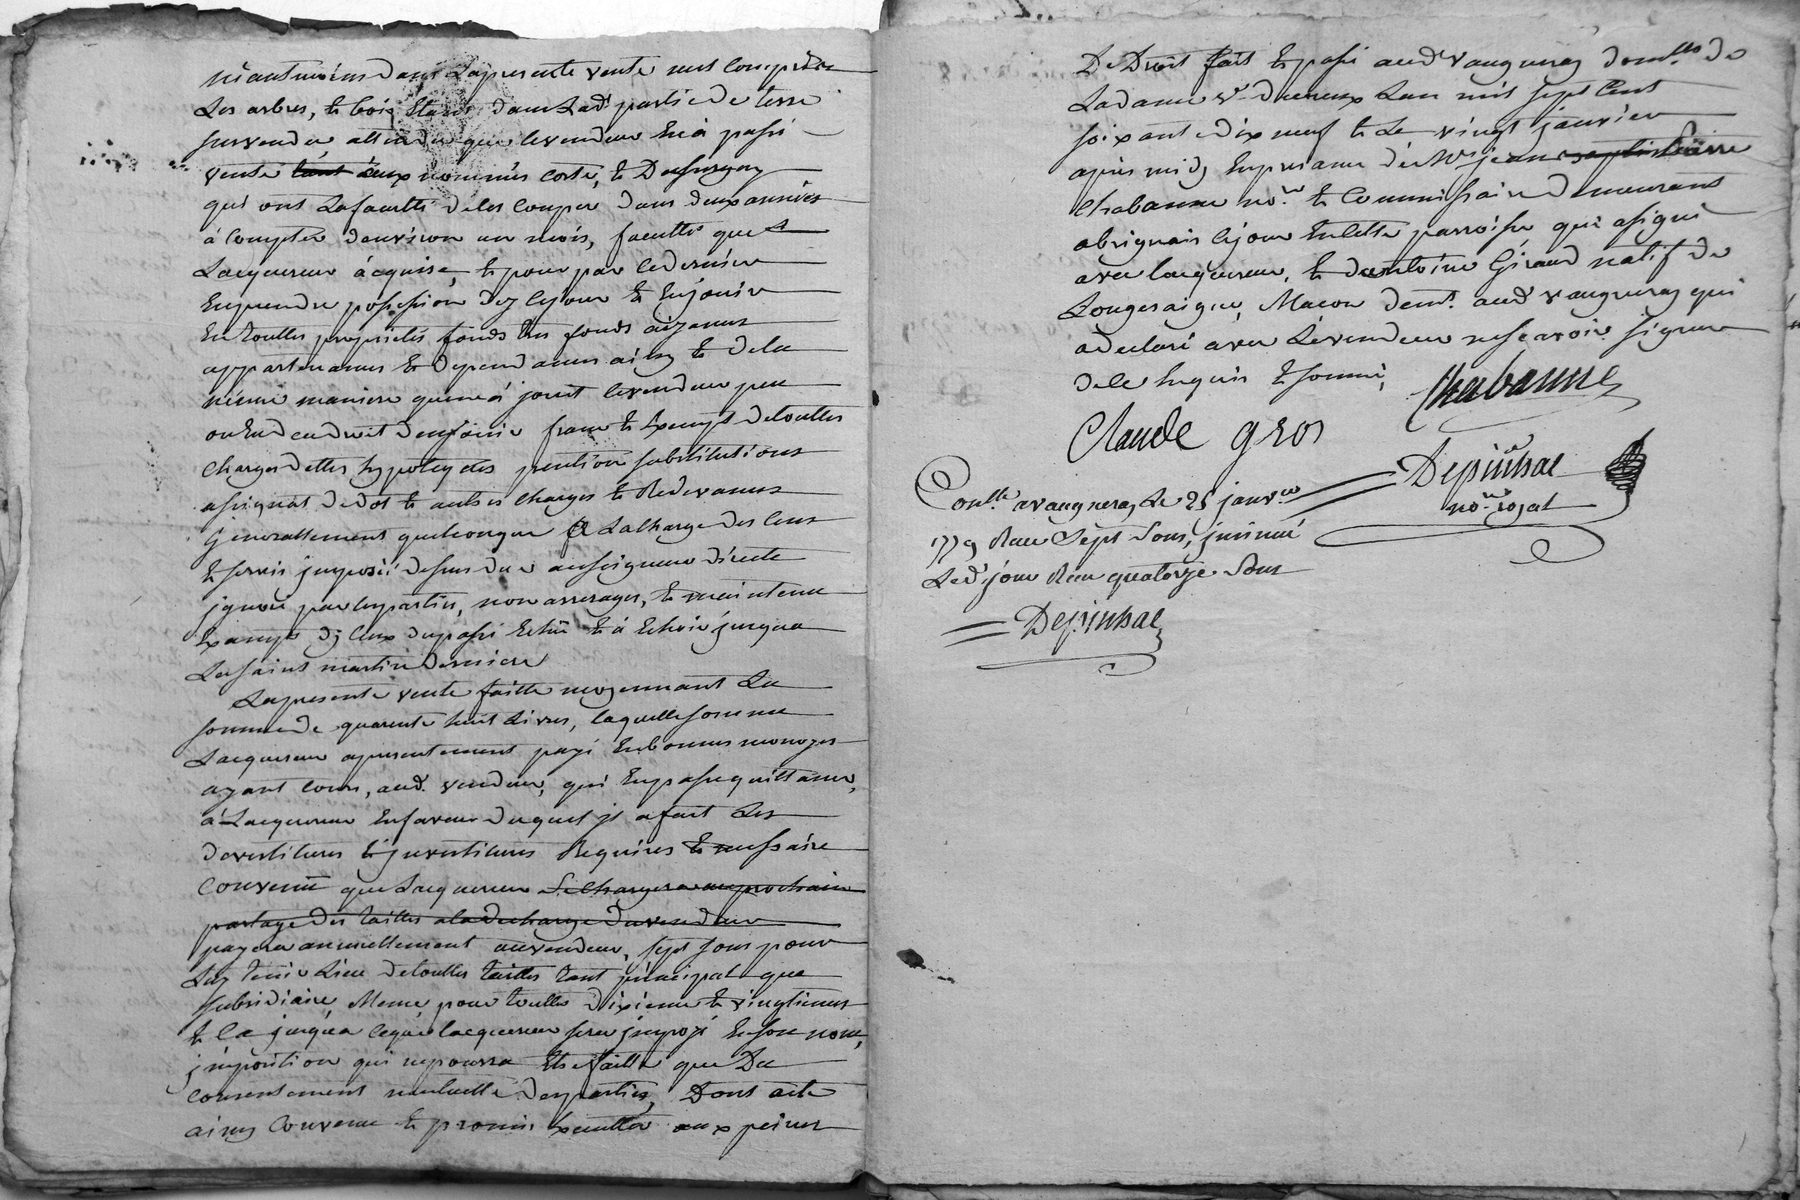 néantmoins dans la presente vente not compris
Les arbres, & bois etant dans Lad. partie de terre
survendu, attendu que le vendeur En a passé
vente tant aux nommés coste, &
qui ont La faculté de les couper dans deux années
à compter d'environ un mois, faculté que
Lacquereur àcquise, & pour par ce dernier
En prendre possession dez cejour & En jouir
En toutte proprietés fonds tres fonds aizances
appartenances & dependances ainsy & de la
meme maniere que en à jouit le vendeur peu
ou En deu droit d'en jouir franc & Exempt de touttes
charges dettes hypoteques pention substitutions
assignat de dot & autres charges & Redevances
generallement quelconque Ala charge des cens
& servis imposéé dessus du au seigneur directe
ignoré par les parties, non arrerages, & maintenu
Exampt dy ceux du passé Echû & à Echoir jusqu'a
La saint martin derniere
La presente vente faitte moyennant La
somme de quarente huit Livres, laquelle somme
Lacquereur a presentement payé En bonnes monoyes
ayant cours, aud. vendeur, qui En passe quittance,
à Lacquereur En faveur duquel il a fait Les
devestitures & investitures Requises & nessaire
convenû que Lacquereur se chargera au prochain
partage des tailles a la decharge du vendeur
payera annuellement au vendeur, sept sous pour
Luy tenir Lieu de touttes tailles tant principal que
subsidiaire, Meme, pour touttes dixieme & vingtiemes
& Ce jusqu'a ceque lacquereur sera imposé En son nom,
imposition qui ne pourra Etre faitte que Du
consentement mutuelle des parties, Dont acte
ainsy Convenu & promis Executter aux peines
De Droit fait & passé aud. vaugneray dom.lle de
La dame v.e dureux Lan mil sept cent
soixante dix neuf & Le vingt janvier
apres midy En presance de M.e jean baptiste pierre
Chabanne no.re & Commissaire demeurant
a brignais cejour En cette parroisse qui a signé
avec lacquereur, & d'antoine Giraud natif de
Longesaigne, Macon dem.t aud. vaugneray qui
a declaré avec Levendeur ne scavoir signer
de ce Enquis & sommé,
Chabanne
Claude gros
Depinhac
no.re royal
Con.llé a vaugneray Le 25 janv.er
1779 Reçu sept sous, insinué
Led. jour Reçu quatorze sous
Depinhac